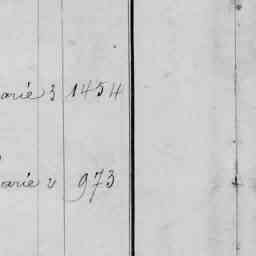 arié 3 1454
arié 2 973